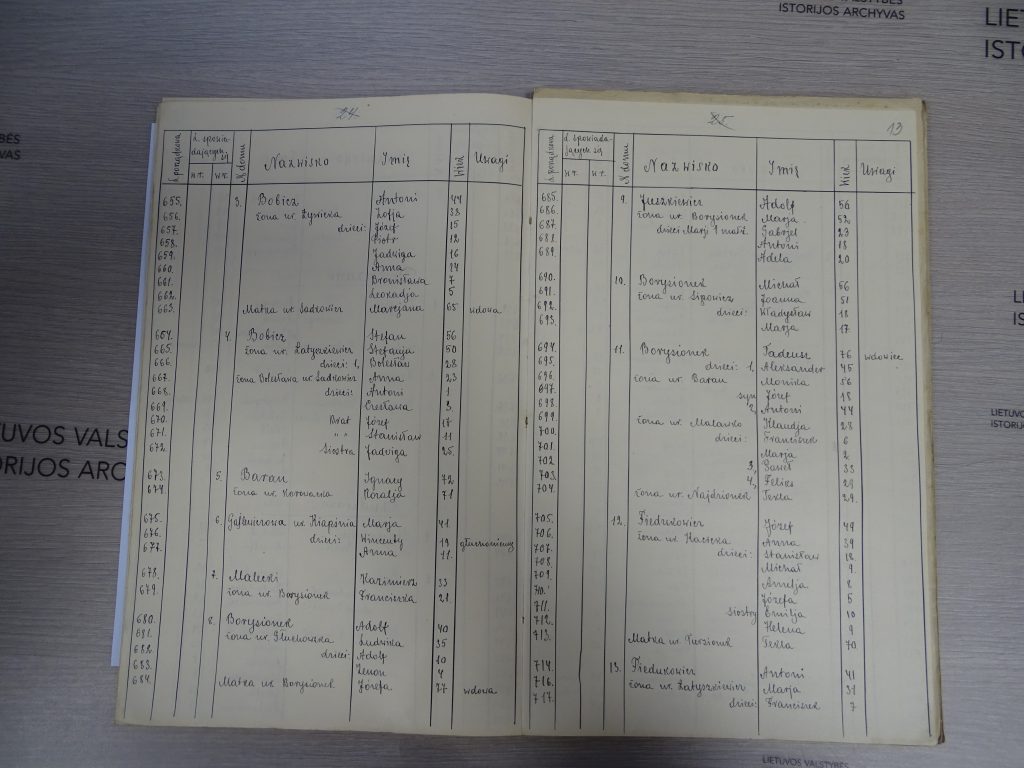 ISTORIJOS ARCHYVAS
LIE
IST
24
№ porządkowy
L. spowiadających się
w r.
w r.
N. domu
Nazwisko
Imię
Wiek
Uwagi
655. 3. Bobicz Antoni 44
656. żona ur. Żywicka Zofja 38
657. dzieci: Józef 15
658. Piotr 12
659. Jadwiga 16
660. Anna 14
661. Bronisława 7
662. Leokadja 5
663. Matka ur. Sadkowicz Marcjana 65 wdowa
664. 4. Bobicz Stefan 56
665. żona ur. Łatyszkiewicz Stefanja 50
666. dzieci: 1, Bolesław 28
667. żona Bolesława ur. Sadkowicz Anna 23
668. dzieci: Antoni 1.
669. Czesława 3.
670. Brat Józef 17
671. " " Stanisław 11
672. Siostra Jadwiga 25.
673. 5. Baran Ignacy 72
674. żona ur. Rozalja 71
675. 6. Marja 41
676. dzieci: Wincenty 19 głuchoniemy
677. Anna 11.
678. 7. Malecki Kazimierz 33
679. żona ur. Borysionek Franciszka 21.
680. 8. Borysionek Adolf 40
681. żona ur. Głuchowska Ludwika 35
682. dzieci: Adolf 10
683. Zenon 4
684. Matka ur. Borysionek Józefa 77 wdowa
25
13
№ porządkowy
L. spowiadających się
w r.
w r.
N. domu
Nazwisko
Imię
Wiek
Uwagi
685. 9. Juszkiewicz Adolf 56
686. żona ur. Borysionek Marja 52
687. dzieci Marji 1 małż. Gabrjel 23
688. Antoni 18
689. Adela 20
690. 10. Borysionek Michał 56
691. żona ur. Lipowicz Joanna 51
692. dzieci: Władysław 18
693. Marja 17
694. 11. Borysionek Tadeusz 76 wdowiec
695. dzieci: 1, Aleksander 45
696. żona ur. Baran Monika 56
697. syn Józef 18
698. 2, Antoni 44
699. żona ur. Klaudja 28
700. dzieci: Franciszek 6
701. Marja 2
702 3, Paweł 33
703. 4, Feliks 29
704. żona ur. Najdzionek Tekla 29.
705. 12. Fiedukowicz Józef 49
706. żona ur. Anna 39
707. dzieci: Stanisław 12
708. Michał 9.
709. Amelja 2
710. Józefa 5
711. siostry Emilja 10
712. Helena 9
713. Matka ur. Tekla 70
714. 13. Fiedukowicz Antoni 41
716. żona ur. Łatyszkiewicz Marja 31
717. dzieci: Franciszek 7
TUVOS VALS
ORIJOS ARC
LIETUVOS
ISTORIJOS
LIETUVOS VALSTYBĖS